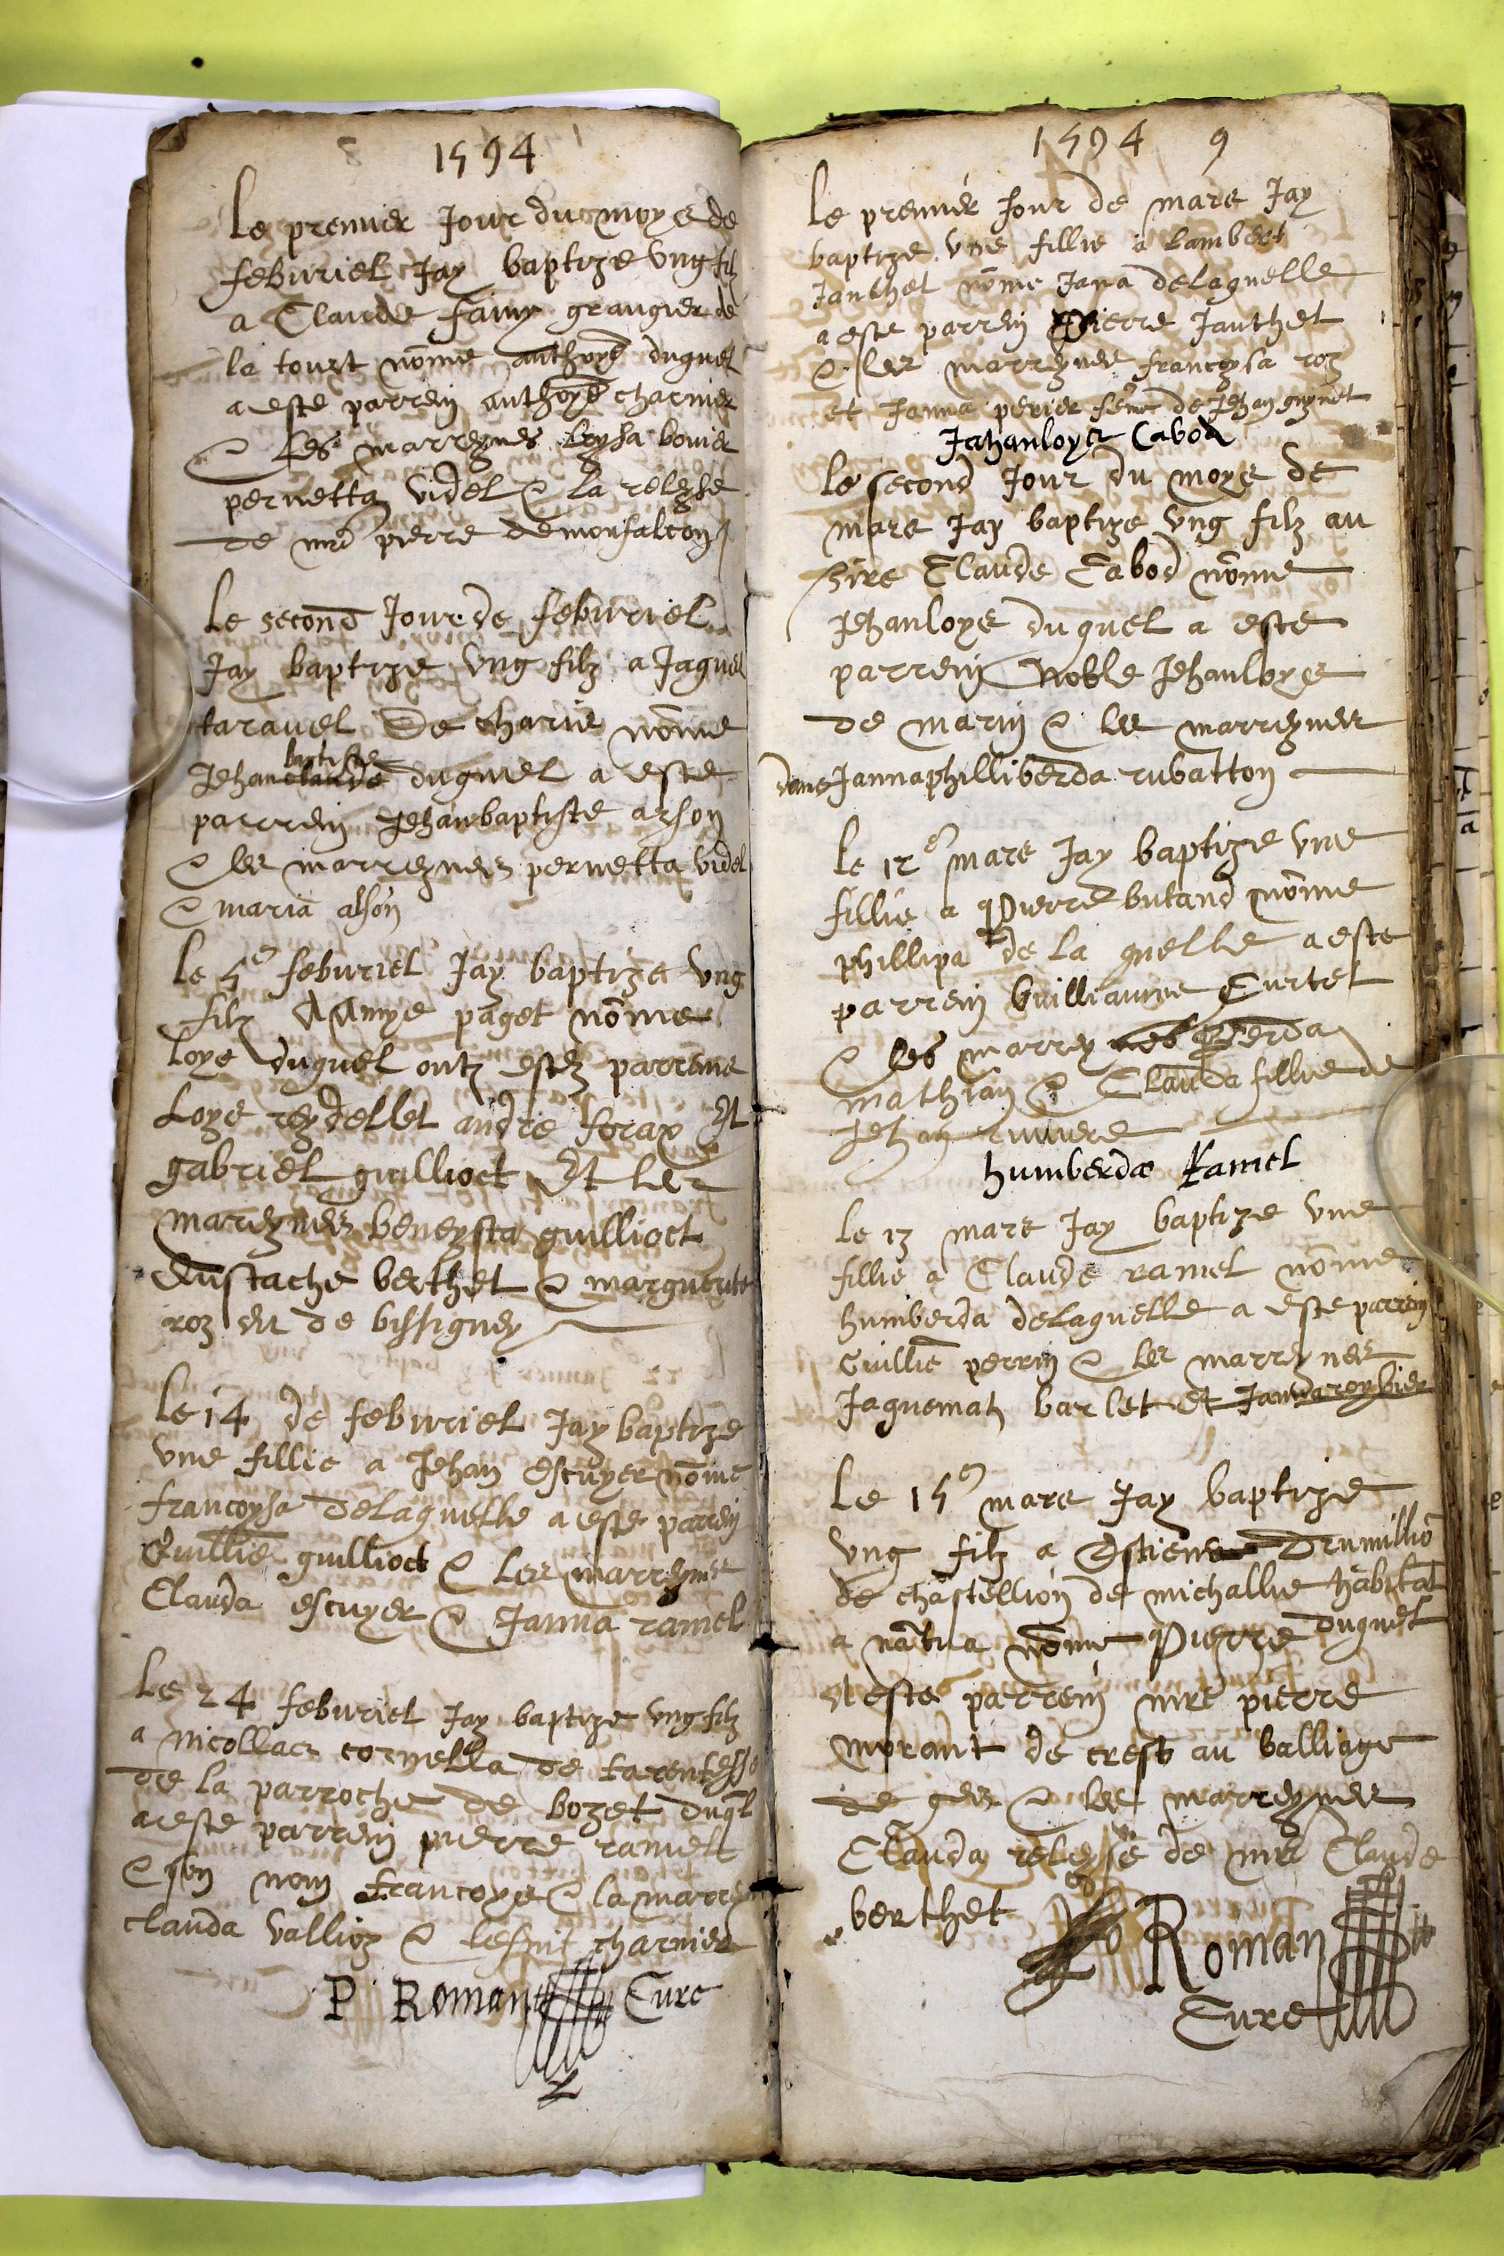 1594
Le premier Jour du moys de
feburiel Jay baptize ung filz
a Claude faivre grangier de
la tourt nomme anthoyne duquel
a este parrein anthoyne charnier
& les marreynes loysa bouier
pernetta videl & la releyse
de mre pierre de monfalcon
Le second Jour de feburiel
Jay baptize ung filz a Jaques
taravel de charix nomme
baptiste
Jehan claude duquel a este
parrein Jehan baptiste arson
& les marreynes pernetta videl
& maria alson
Le 5e feburiel Jay baptize ung
filz a Amye paget nomme
loys duquel ont estez parreins
Loys reydellet andre forax Et
gabriel guillioct Et les
mareynes beneysta guillioct
Eustache berthet & marguerite
roz dit de bissigney
Le 14 de feburiel Jay baptize
une fillie a Jehan escuyer nomme
francoysa de laquelle a este parrein
Guillie guillioct & les marreynes
Clauda escuyer & Janna ramel
Le 24 feburiel Jay baptize ung filz
a nicollas cornella de tarentesse
de la parroche de bozet duql
a este parrein pierre ramel
& son nom francoys & la marreine
clauda vallioz & charnier
P Roman Cure
1594 9
Le premier Jour de mars Jay
baptize une fillie a lambert
Janthet nomme Jana de laquelle
a este parrein pierre Janthet
& les marreynes francoysa roz
et Janna perier feme de Jehan guynet
Jahanloys Cabod
Le second Jour du moys de
mars Jay baptize ung filz au
sire Claude Cabod nomme
Jehanloys duquel a este
parrein Noble Jehanloys
de marin & les marreynes
dame Janna philliberda rubatton
Le 12e mars Jay baptize une
fillie a Pierre butand nomme
phillipa de la quelle a este
parrein Guilliaume Curtet
& les marreynes berda
mathian & Clauda fillie de
Jehan riviere
humberda Ramel
Le 13 mars Jay baptize une
fillie a Claude ramel nomme
humberda de laquelle a este parrein
Guillie perrin & les marreynes
Jaquemaz barlet et
Le 15e mars Jay baptize
ung filz a Estiene Drumillio
de chastellion de michallie habitat
a natua nomme Pierre duquel
a este parrein mre pierre
morant de crest au balliage
de gex & les marreynes
Clauda releysse de mre Claude
berthet
P Roman
Cure